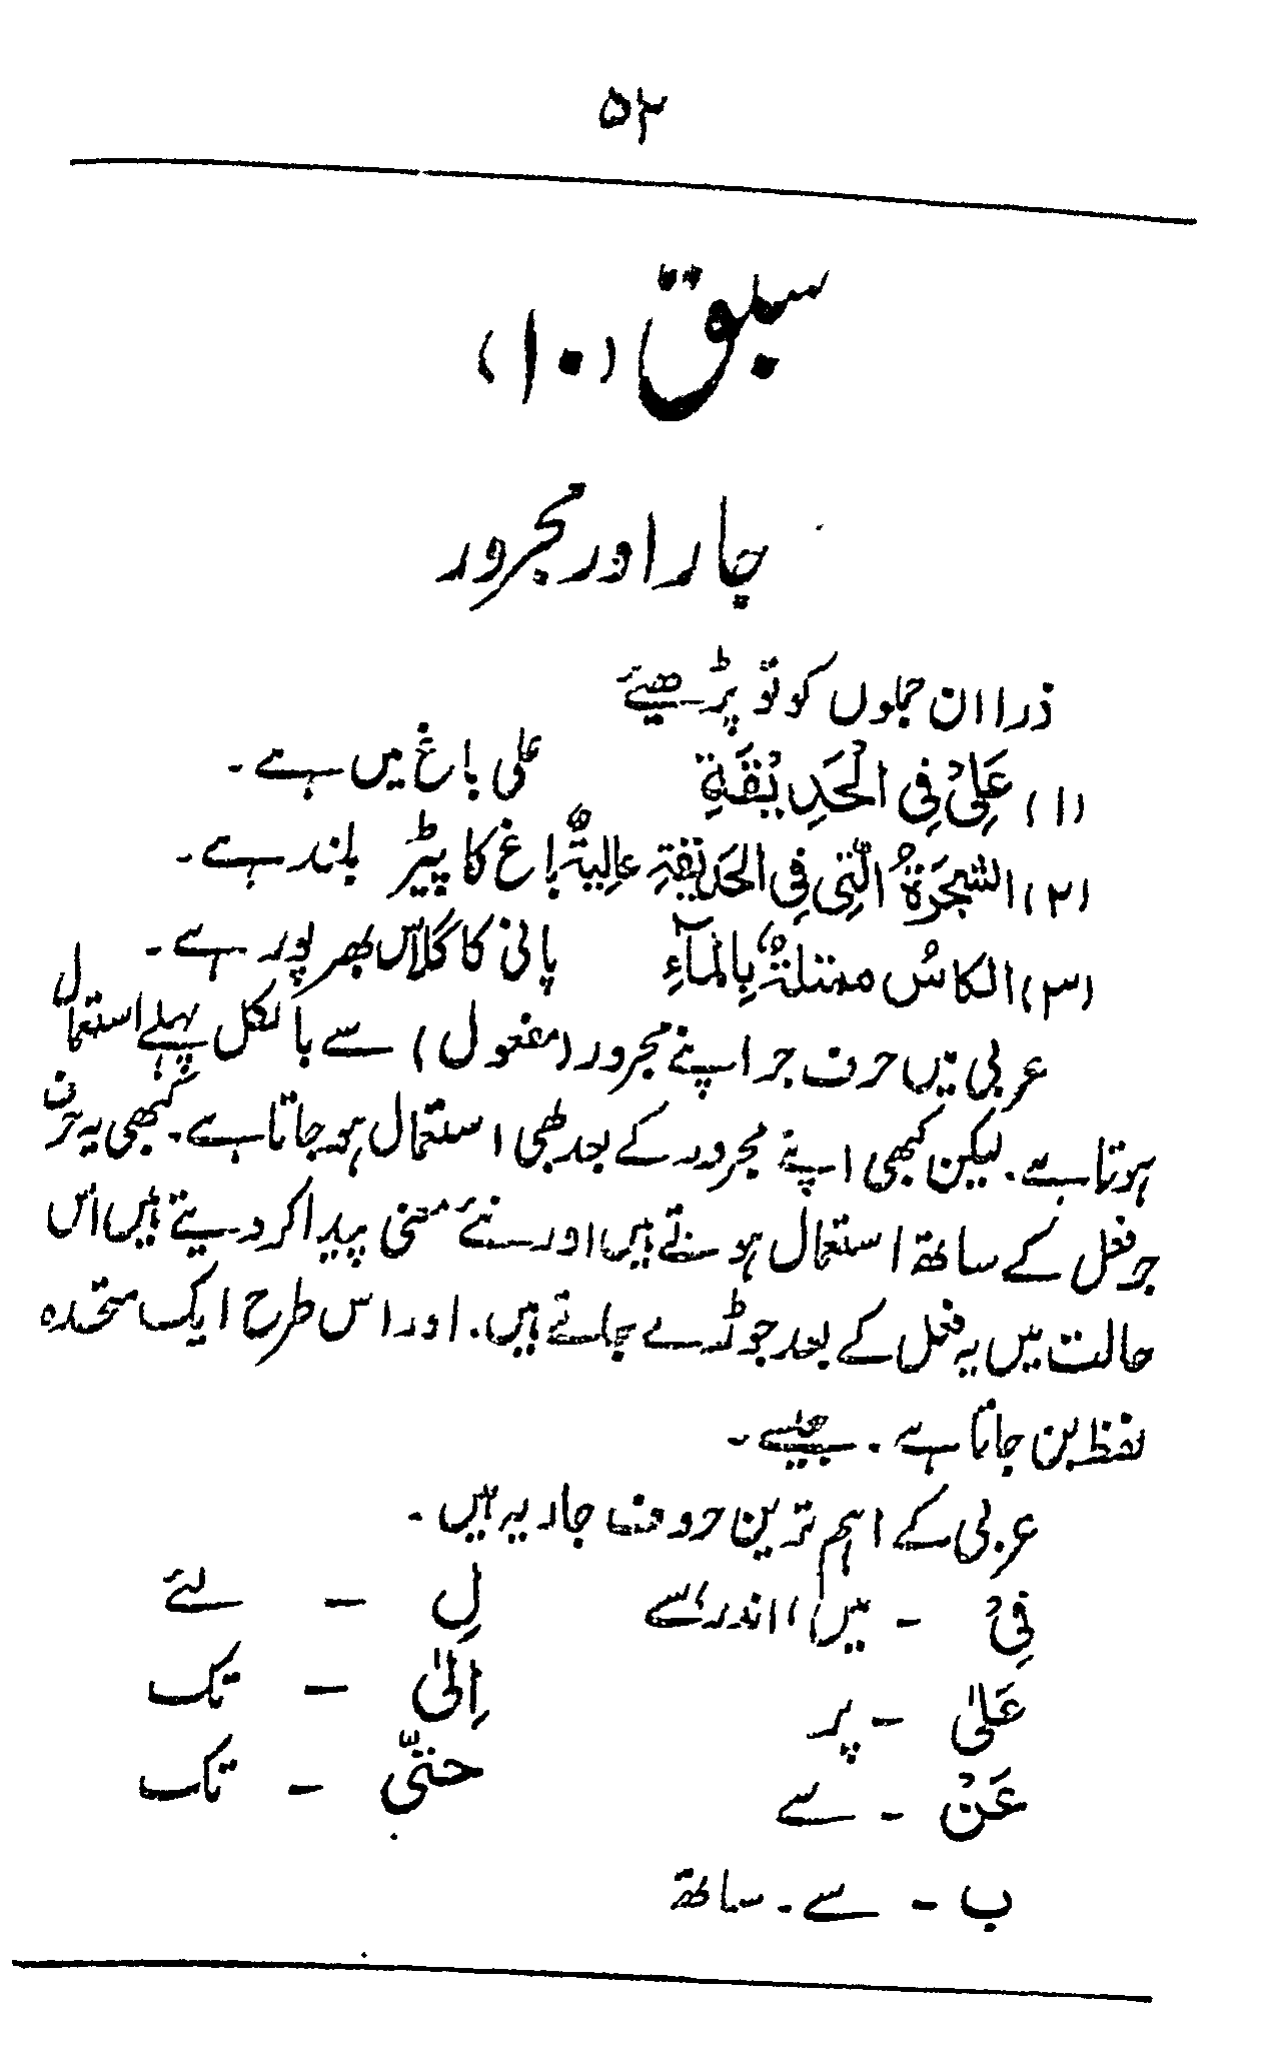 ۵۲
سبق (۱۰)
جار اور مجرور
ذرا ان جملوں کو تو پڑھیئے
(۱) عَلِیْ فِی الْحَدِیْقَةِ علی باغ میں ہے۔
(۲) الشَجَرَةُ الَّتِی فِی الحَدِیْقَةِ عالِیةٌ باغ کا پیڑ بلند ہے۔
(۳) الکاسُ ممتلةٌ بِالْمآءِ پانی کا گلاس بھرپور ہے۔
عربی میں حرف جر اپنے مجرور (مفعول) سے بالکل پہلے استعمال
ہوتا ہے۔ لیکن کبھی اپنے مجرور کے بعد بھی استعمال ہو جاتا ہے۔ کبھی یہ حرف
جر فعل کے ساتھ استعمال ہوتے ہیں اور نئے معنی پیدا کر دیتے ہیں اس
حالت میں یہ فعل کے بعد جوڑے جاتے ہیں۔ اور اس طرح ایک متحدہ
لفظ بن جاتا ہے۔ جیسے۔
عربی کے اہم ترین حروف جار یہ ہیں۔
فِیْ - میں، اندر، سے لِ - لئے
عَلیٰ - پر اِلیٰ - تک
عَنْ - سے حتیّٰ - تک
ب - سے۔ ساتھ